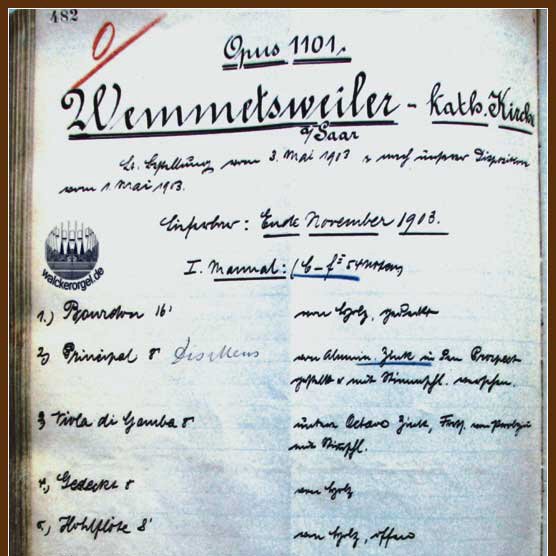 482
Opus 1101.
Wemmetsweiler - kath. Kirche
a/Saar
Lt. Bestellung vom 3. Mai 1903 & nach unserer Disposition
vom 1. Mai 1903.
Lieferbar: Ende November 1903.
walckerorgel.de
I. Manual: (C-f³ 54 Noten)
1.) Bourdon 16' von Holz, gedeckt
2.) Principal 8' von Alumin. Zink in den Prospect
gestellt & mit Stimmschl. versehen.
3.) Viola di Gamba 8' untere Octave Zink, Forts. von
mit Stimschl.
4.) Gedeckt 8' von Holz
5.) Hohlflöte 8' von Holz, offen